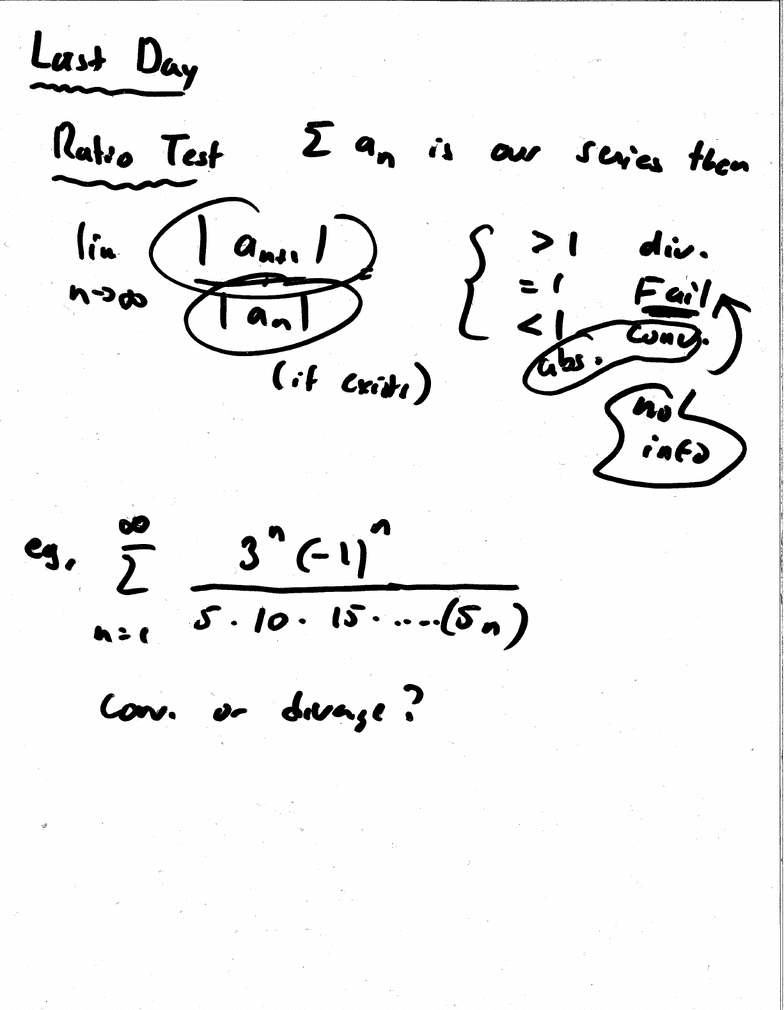 Last Day
Ratio Test Σ aₙ is our series then
lim n→∞ |aₙ₊₁| / |aₙ| { > 1 div.
= 1 Fail
< 1 abs. conv.
(if exists)
no info
eg, ∞ Σ n=1 3ⁿ(-1)ⁿ / 5 · 10 · 15 · .....(5n)
Conv. or diverge?